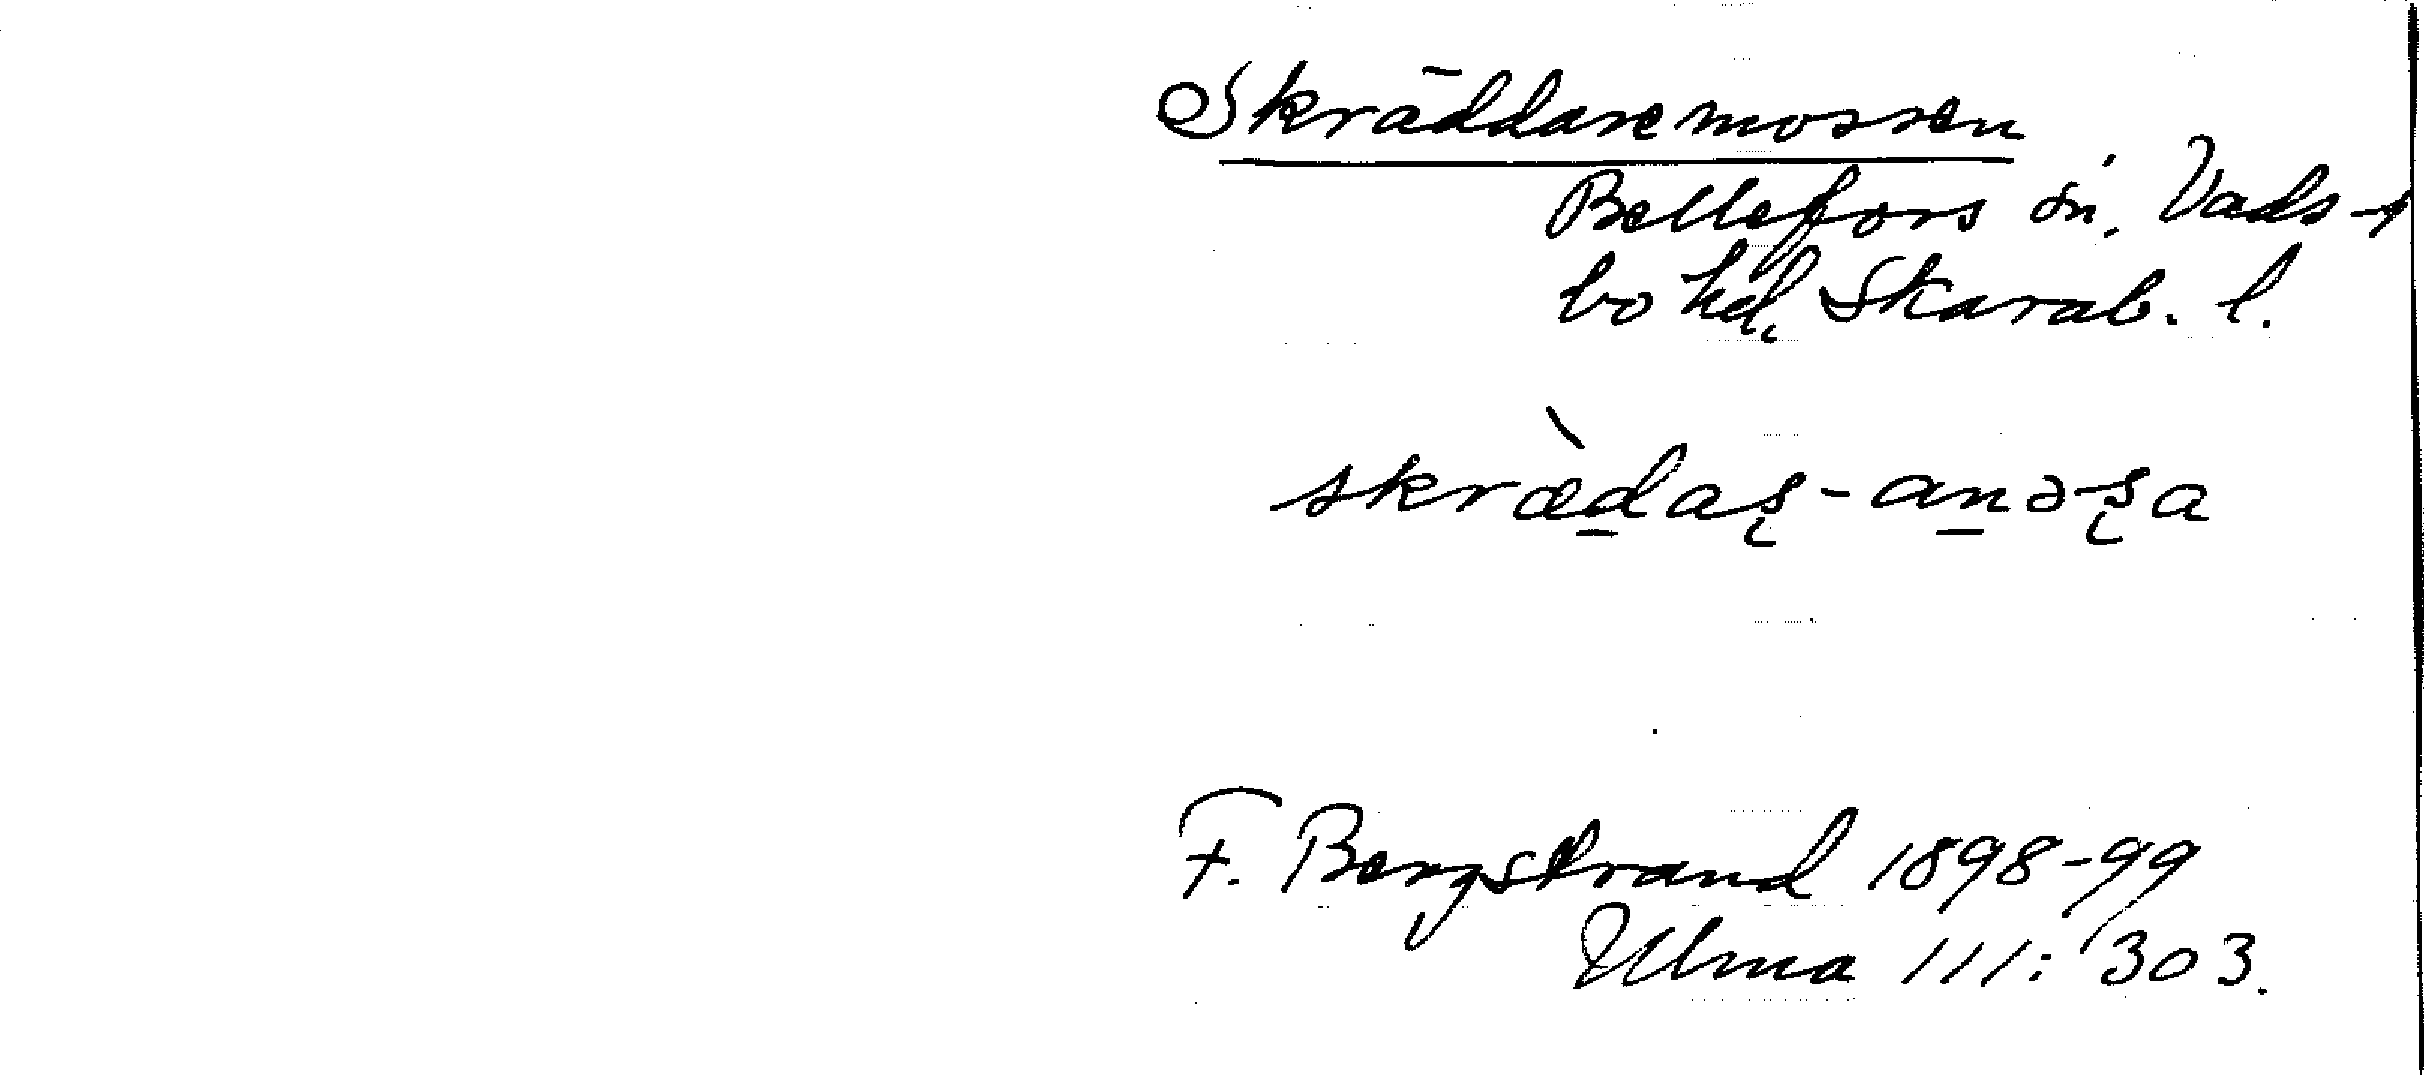 Skräddaremossen
Bellefors sn. Vads-
bo hd. Skarab. l.
skræ̀d̲aʂ-an̲əʂa
F. Bergstrand 1898-99
Ulma 111:303.